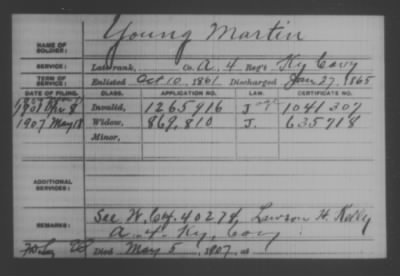 Young Martin
NAME OF SOLDIER:
SERVICE: Late rank, Co. A, 4 Reg't Ky Cavy
TERM OF SERVICE: Enlisted Oct 10, 1861 Discharged Jan 27, 1865
DATE OF FILING. CLASS. APPLICATION NO. LAW. CERTIFICATE NO.
1901 Apr 8 Invalid, 1265916 1041307
1907 May 18 Widow, 869,810 J. 635718
Minor,
ADDITIONAL SERVICES:
REMARKS: See W. Ctf. 40278, Lawson H. Kelly
A. 4. Ky. Cavy
Died May 5, 1907, at